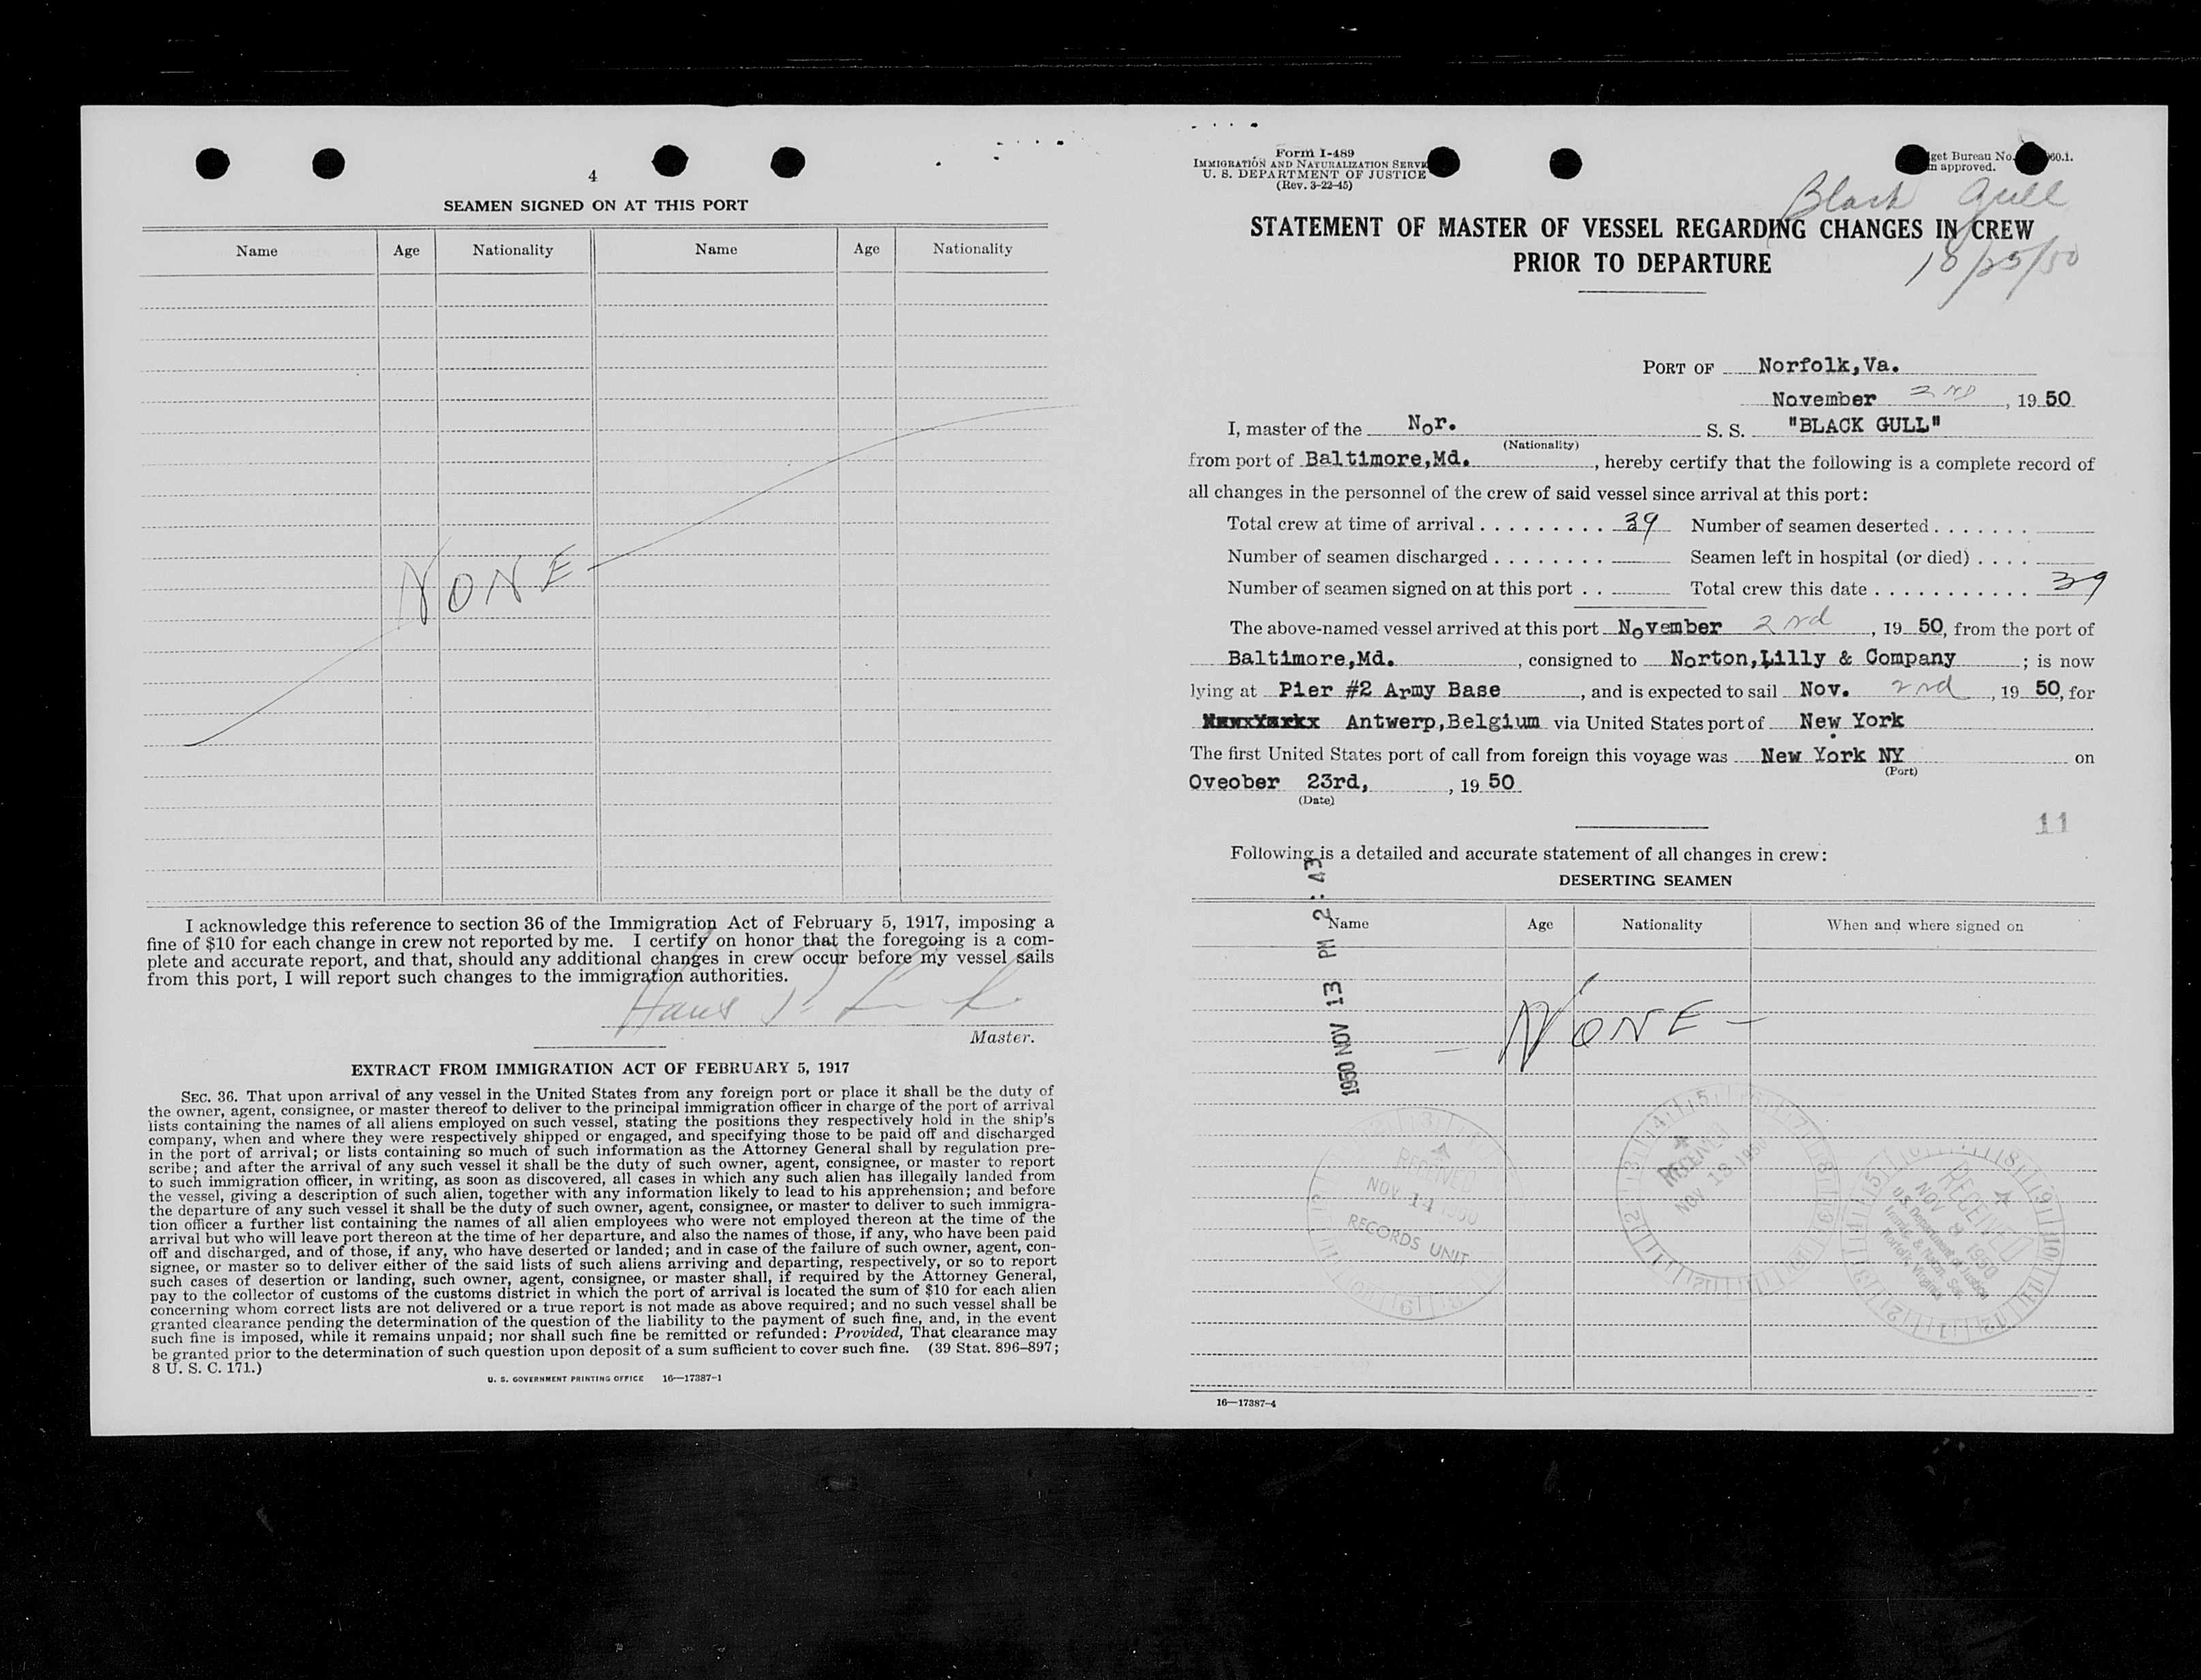 4
SEAMEN SIGNED ON AT THIS PORT
Name Age Nationality Name Age Nationality
NONE
I acknowledge this reference to section 36 of the Immigration Act of February 5, 1917, imposing a
fine of $10 for each change in crew not reported by me. I certify on honor that the foregoing is a com-
plete and accurate report, and that, should any additional changes in crew occur before my vessel sails
from this port, I will report such changes to the immigration authorities.
Hans
Master.
EXTRACT FROM IMMIGRATION ACT OF FEBRUARY 5, 1917
SEC. 36. That upon arrival of any vessel in the United States from any foreign port or place it shall be the duty of
the owner, agent, consignee, or master thereof to deliver to the principal immigration officer in charge of the port of arrival
lists containing the names of all aliens employed on such vessel, stating the positions they respectively hold in the ship's
company, when and where they were respectively shipped or engaged, and specifying those to be paid off and discharged
in the port of arrival; or lists containing so much of such information as the Attorney General shall by regulation pre-
scribe; and after the arrival of any such vessel it shall be the duty of such owner, agent, consignee, or master to report
to such immigration officer, in writing, as soon as discovered, all cases in which any such alien has illegally landed from
the vessel, giving a description of such alien, together with any information likely to lead to his apprehension; and before
the departure of any such vessel it shall be the duty of such owner, agent, consignee, or master to deliver to such immigra-
tion officer a further list containing the names of all alien employees who were not employed thereon at the time of the
arrival but who will leave port thereon at the time of her departure, and also the names of those, if any, who have been paid
off and discharged, and of those, if any, who have deserted or landed; and in case of the failure of such owner, agent, con-
signee, or master so to deliver either of the said lists of such aliens arriving and departing, respectively, or so to report
such cases of desertion or landing, such owner, agent, consignee, or master shall, if required by the Attorney General,
pay to the collector of customs of the customs district in which the port of arrival is located the sum of $10 for each alien
concerning whom correct lists are not delivered or a true report is not made as above required; and no such vessel shall be
granted clearance pending the determination of the question of the liability to the payment of such fine, and, in the event
such fine is imposed, while it remains unpaid; nor shall such fine be remitted or refunded: Provided, That clearance may
be granted prior to the determination of such question upon deposit of a sum sufficient to cover such fine. (39 Stat. 896–897;
8 U. S. C. 171.)
U. S. GOVERNMENT PRINTING OFFICE 16—17387-1
Form I-489
IMMIGRATION AND NATURALIZATION SERVI
U. S. DEPARTMENT OF JUSTICE
(Rev. 3-22-45)
get Bureau No. 60.1.
approved.
Black Gull
STATEMENT OF MASTER OF VESSEL REGARDING CHANGES IN CREW
PRIOR TO DEPARTURE
10/25/50
PORT OF Norfolk,Va.
November 2ND, 19 50
I, master of the Nor. S. S. "BLACK GULL"
(Nationality)
from port of Baltimore,Md., hereby certify that the following is a complete record of
all changes in the personnel of the crew of said vessel since arrival at this port:
Total crew at time of arrival . . . . . . . . . 39 Number of seamen deserted . . . . . . .
Number of seamen discharged . . . . . . . . Seamen left in hospital (or died) . . . .
Number of seamen signed on at this port . . Total crew this date . . . . . . . . . . . 39
The above-named vessel arrived at this port November 2nd, 19 50, from the port of
Baltimore,Md., consigned to Norton,Lilly & Company; is now
lying at Pier #2 Army Base, and is expected to sail Nov. 2nd, 19 50, for
Antwerp,Belgium via United States port of New York
The first United States port of call from foreign this voyage was New York NY on
(Port)
Oveober 23rd, , 19 50
(Date)
11
Following is a detailed and accurate statement of all changes in crew:
DESERTING SEAMEN
Name Age Nationality When and where signed on
1950 NOV 13 PM 2:43
— NONE —
RECEIVED
NOV 14 1950
RECORDS UNIT
RECEIVED
NOV 13 1950
RECEIVED
NOV 1950
U.S. Department of Justice
Immig. & Natzn. Ser.
Norfolk, Virginia
16—17387-4